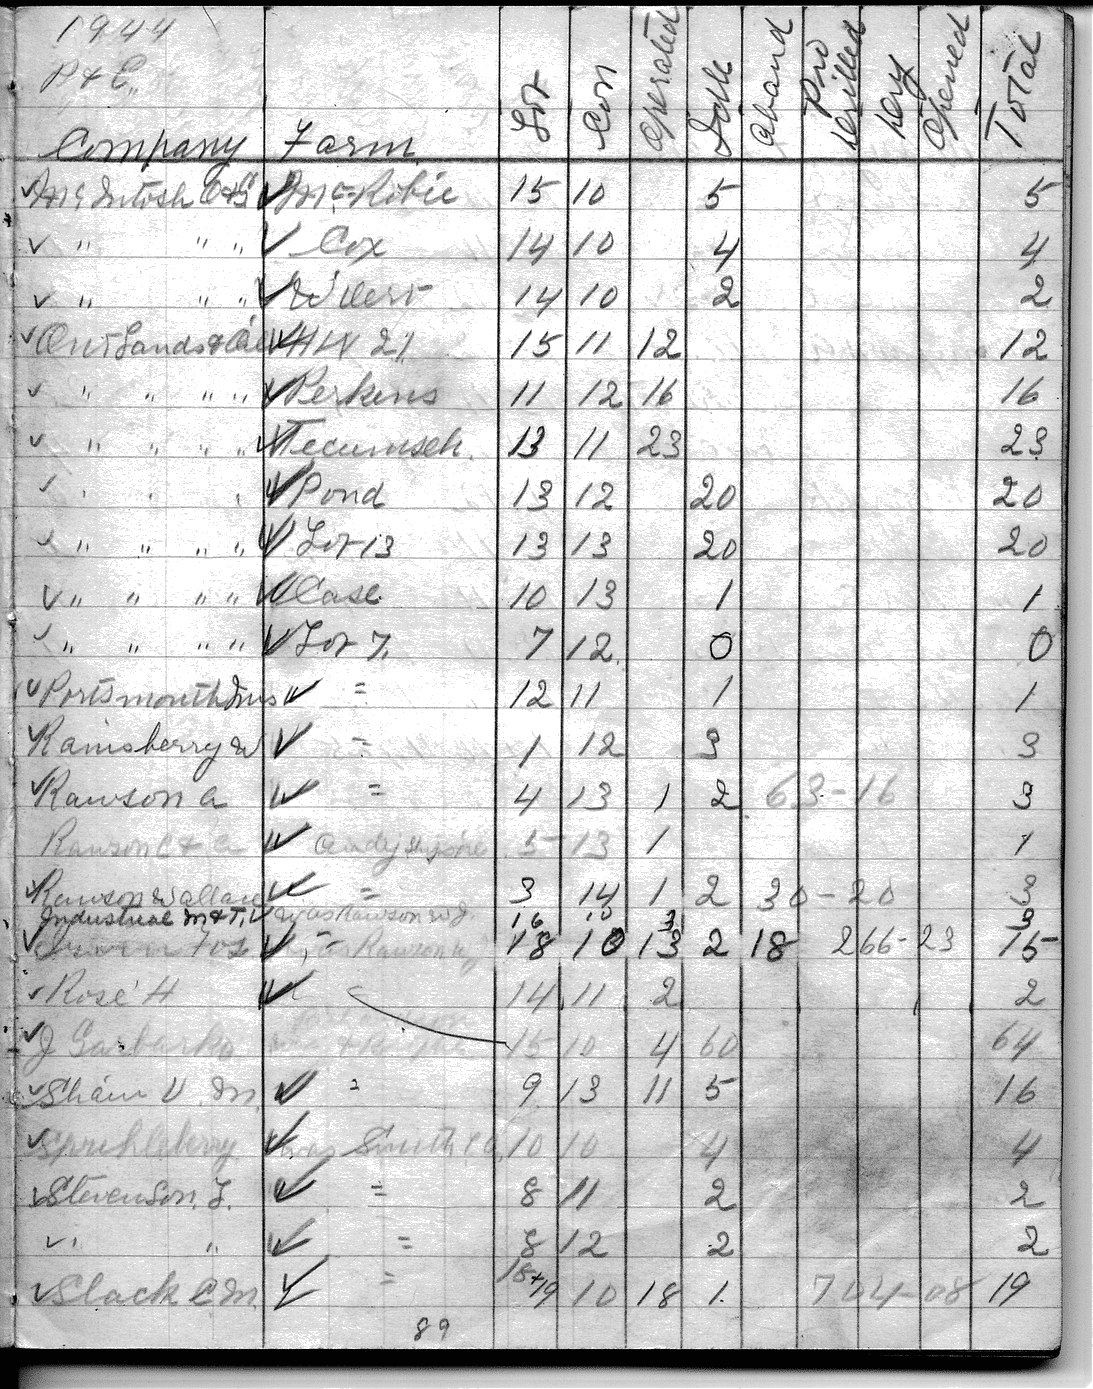 1944
P & E.
Company Farm Lot Con Operated Idle Aband Pro Drilled Dry Opened Total
✓ McIntosh O&G ✓ McRobie 15 10 5 5
✓ " " " ✓ Cox 14 10 4 4
✓ " " " ✓ 14 10 2 2
✓ Ont Lands & Oil ✓ 15 11 12 12
✓ " " " " ✓ Perkins 11 12 16 16
✓ " " " " ✓ Tecumseh 13 11 23 23
✓ " " " ✓ Pond 13 12 20 20
✓ " " " " ✓ Lot 13 13 13 20 20
✓ " " " " ✓ Case 10 13 1 1
✓ " " " " ✓ Lot 7 7 12 0 0
✓ Portsmouth Ins ✓ = 12 11 1 1
✓ Rainsberry W ✓ = 1 12 3 3
✓ Rawson A ✓ = 4 13 1 2 63-16 3
Rawson C & A ✓ Andy 5 13 1 1
✓ Rawson Wallace ✓ = 3 14 1 2 30-20 3
Industrial M & T. ✓ was Rawson W J. 16 10 3 3
✓ ✓ Rawson 18 10 13 2 18 266-23 15
✓ Rose H ✓ 14 11 2 2
✓ J Garbarko 15 10 4 60 64
✓ Shain V. M. ✓ = 9 13 11 5 16
✓ ✓ was Smith 10 10 4 4
✓ Stevenson. J. ✓ = 8 11 2 2
✓ " " ✓ = 8 12 2 2
✓ Slack C M. ✓ = 18+19 10 18 1 704-08 19
89